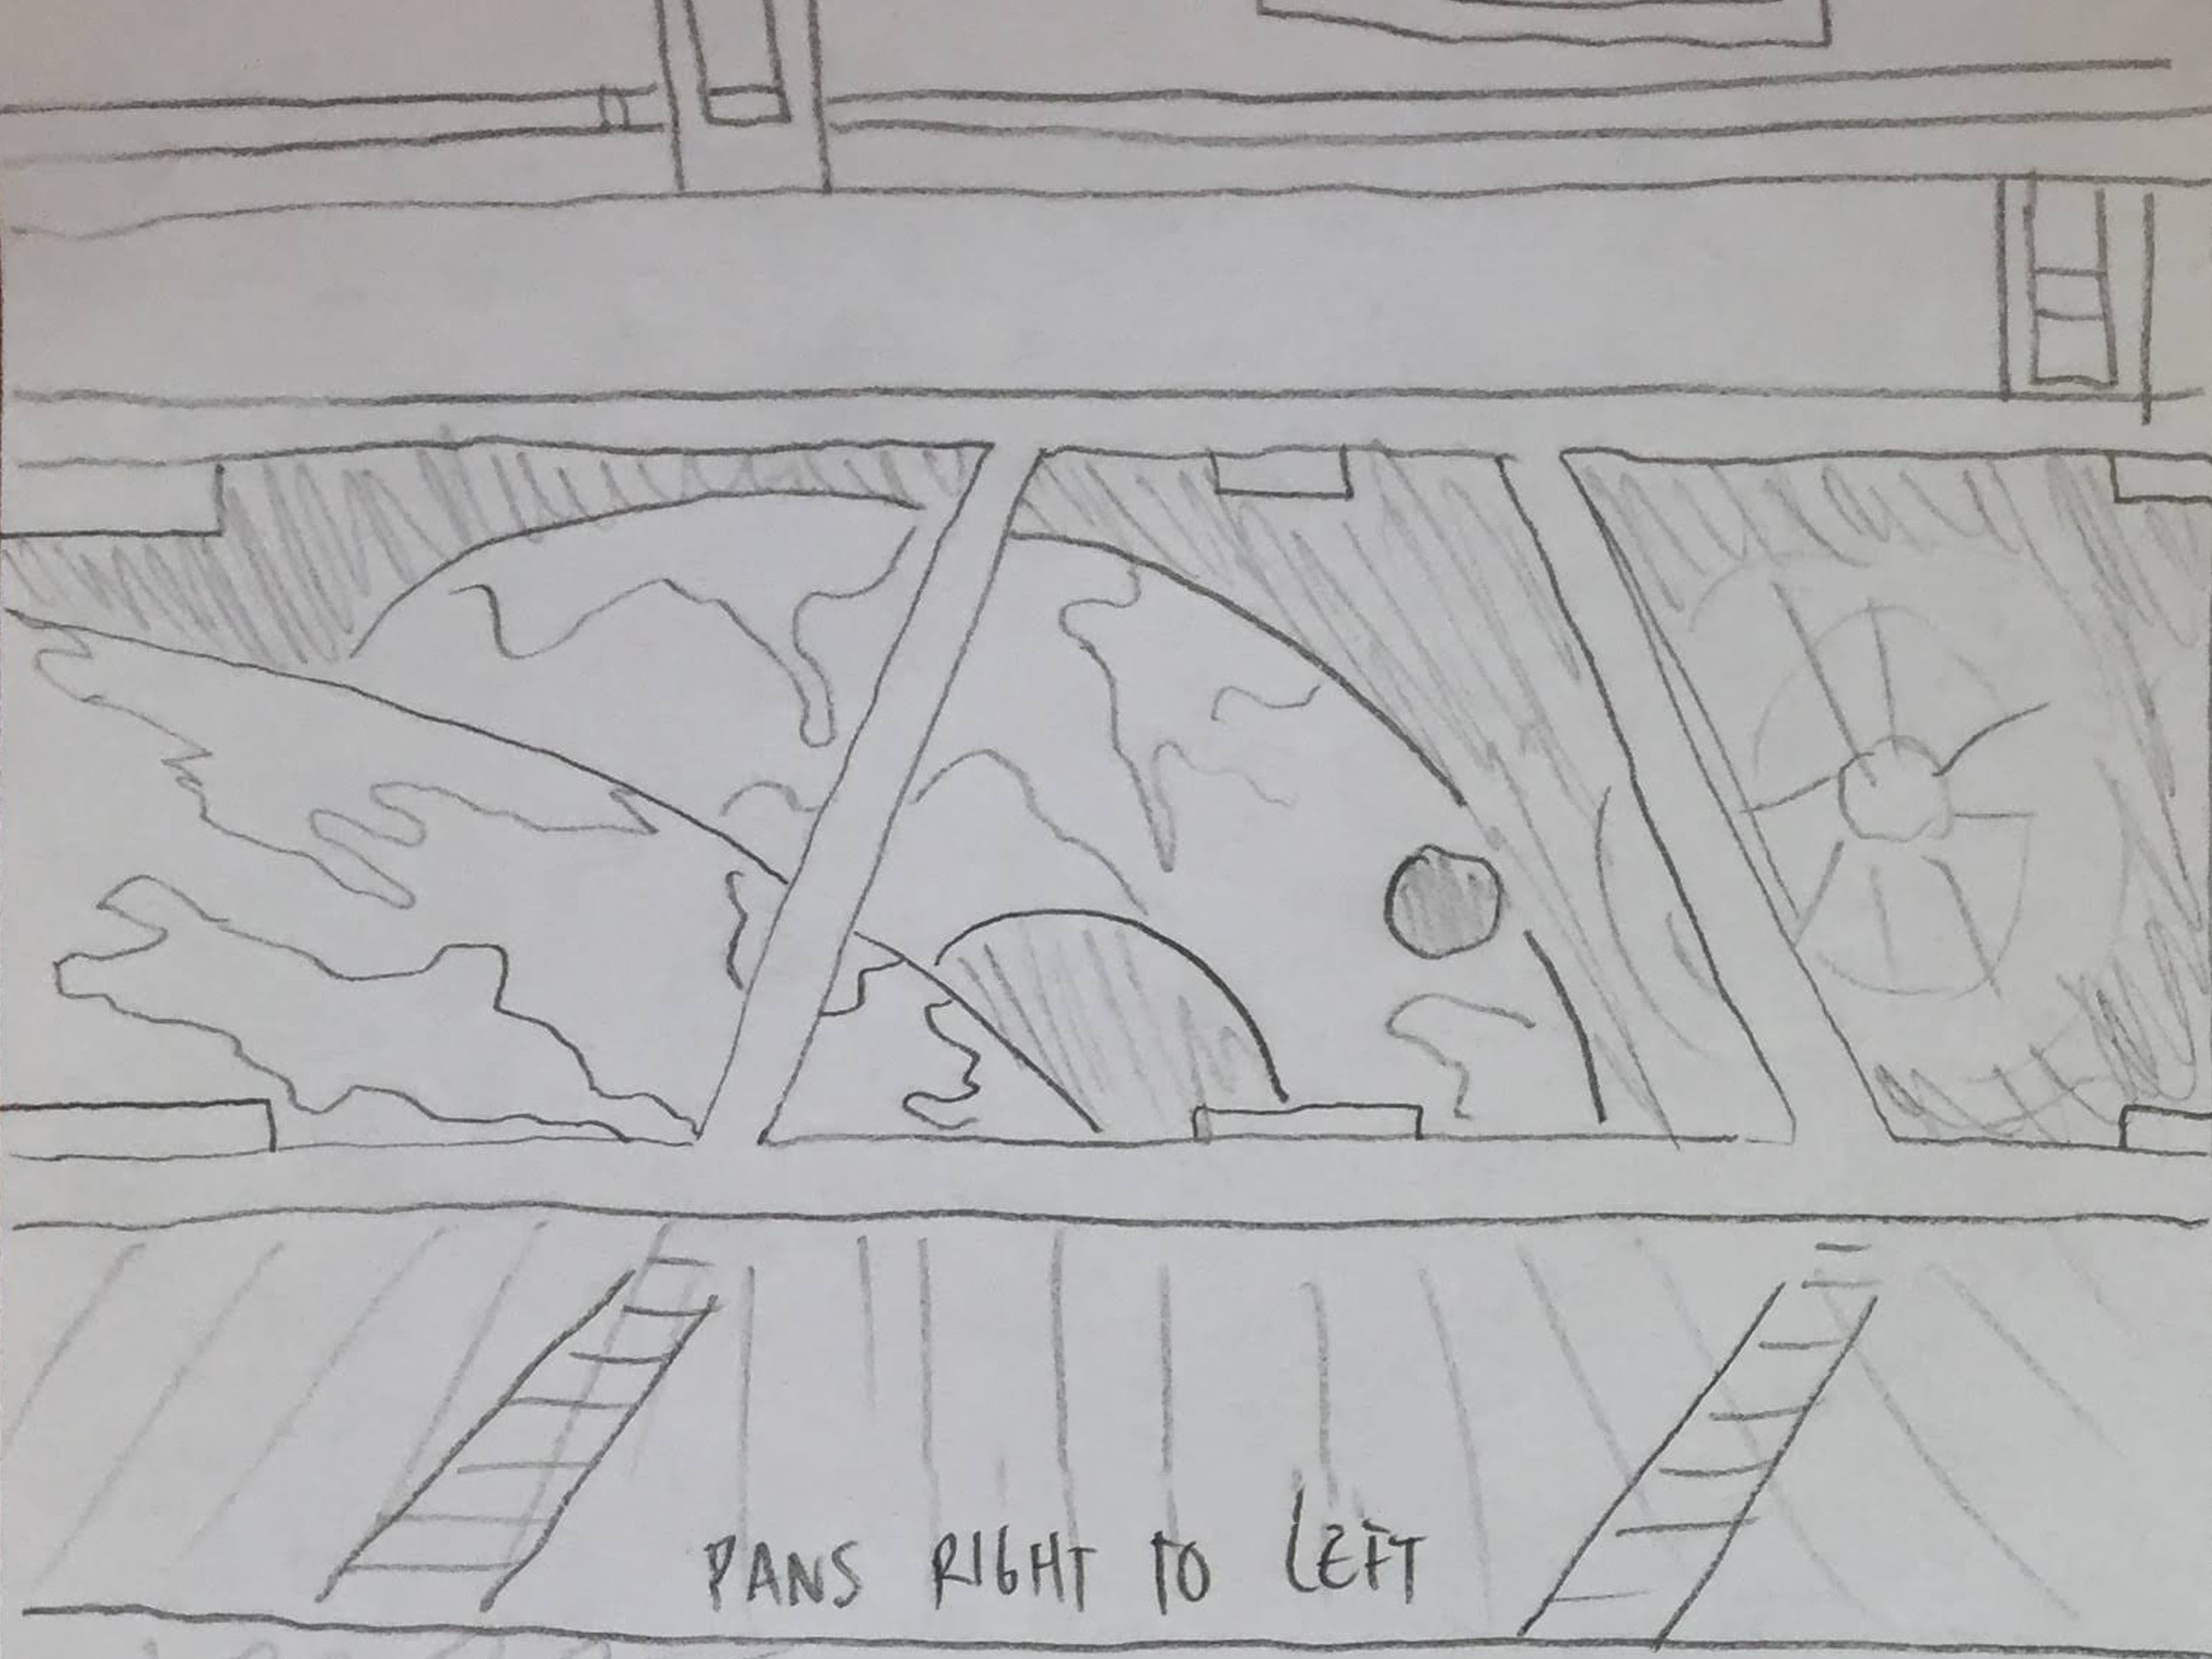 PANS RIGHT TO LEFT